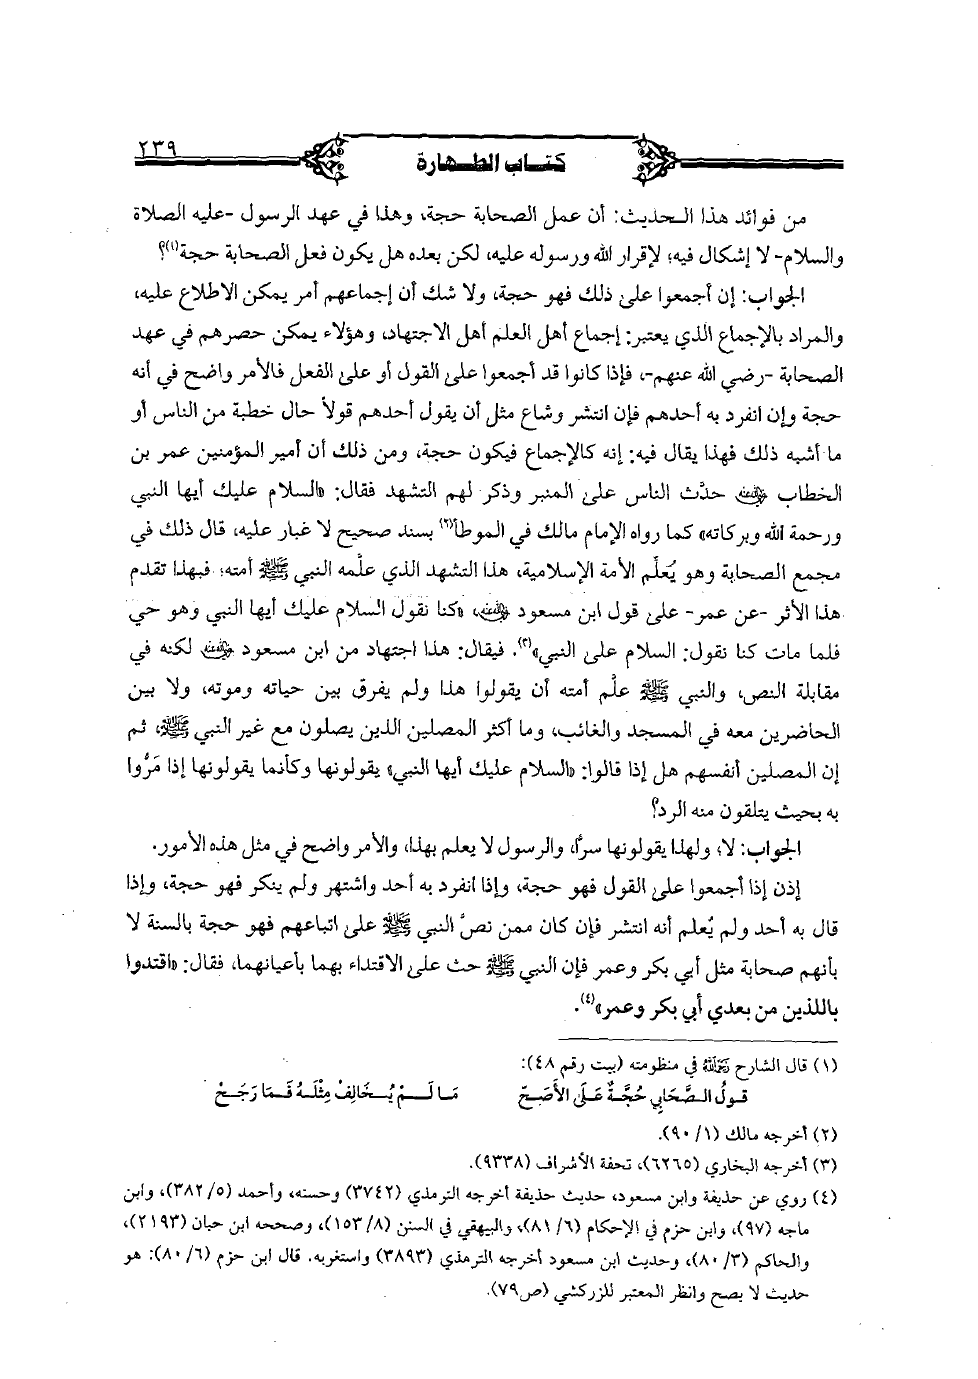 ٢٣٩
كتاب الطهارة
من فوائد هذا الحديث: أن عمل الصحابة حجة، وهذا في عهد الرسول -عليه الصلاة
والسلام- لا إشكال فيه؛ لإقرار الله ورسوله عليه، لكن بعده هل يكون فعل الصحابة حجة(١)؟
الجواب: إن أجمعوا على ذلك فهو حجة، ولا شك أن إجماعهم أمر يمكن الاطلاع عليه،
والمراد بالإجماع الذي يعتبر: إجماع أهل العلم أهل الاجتهاد، وهؤلاء يمكن حصرهم في عهد
الصحابة -رضي الله عنهم-، فإذا كانوا قد أجمعوا على القول أو على الفعل فالأمر واضح في أنه
حجة وإن انفرد به أحدهم فإن انتشر وشاع مثل أن يقول أحدهم قولاً حال خطبة من الناس أو
ما أشبه ذلك فهذا يقال فيه: إنه كالإجماع فيكون حجة، ومن ذلك أن أمير المؤمنين عمر بن
الخطاب رضي الله عنه حدَّث الناس على المنبر وذكر لهم التشهد فقال: «السلام عليك أيها النبي
ورحمة الله وبركاته» كما رواه الإمام مالك في الموطأ(٢) بسند صحيح لا غبار عليه، قال ذلك في
مجمع الصحابة وهو يُعلِّم الأمة الإسلامية، هذا التشهد الذي علَّمه النبي ﷺ أمته؛ فبهذا تقدم
هذا الأثر -عن عمر- على قول ابن مسعود رضي الله عنه، «كنا نقول السلام عليك أيها النبي وهو حي
فلما مات كنا نقول: السلام على النبي»(٣). فيقال: هذا اجتهاد من ابن مسعود رضي الله عنه لكنه في
مقابلة النص، والنبي ﷺ علَّم أمته أن يقولوا هذا ولم يفرق بين حياته وموته، ولا بين
الحاضرين معه في المسجد والغائب، وما أكثر المصلين الذين يصلون مع غير النبي ﷺ، ثم
إن المصلين أنفسهم هل إذا قالوا: «السلام عليك أيها النبي» يقولونها وكأنما يقولونها إذا مَرُّوا
به بحيث يتلقون منه الرد؟
الجواب: لا؛ ولهذا يقولونها سرًّا، والرسول لا يعلم بهذا، والأمر واضح في مثل هذه الأمور.
إذن إذا أجمعوا على القول فهو حجة، وإذا انفرد به أحد واشتهر ولم ينكر فهو حجة، وإذا
قال به أحد ولم يُعلم أنه انتشر فإن كان ممن نصَّ النبي ﷺ على اتباعهم فهو حجة بالسنة لا
بأنهم صحابة مثل أبي بكر وعمر فإن النبي ﷺ حث على الاقتداء بهما بأعيانهما، فقال: «اقتدوا
باللذين من بعدي أبي بكر وعمر»(٤).
(١) قال الشارح رحمه الله في منظومته (بيت رقم ٤٨):
قولُ الصَّحَابِي حُجَّةٌ عَلَى الأَصَحّ مَا لَمْ يُخَالِفْ مِثْلَهُ فَمَا رَجَحْ
(٢) أخرجه مالك (١/ ٩٠).
(٣) أخرجه البخاري (٦٢٦٥)، تحفة الأشراف (٩٣٣٨).
(٤) روي عن حذيفة وابن مسعود، حديث حذيفة أخرجه الترمذي (٣٧٤٢) وحسنه، وأحمد (٥/ ٣٨٢)، وابن
ماجه (٩٧)، وابن حزم في الإحكام (٦/ ٨١)، والبيهقي في السنن (٨/ ١٥٣)، وصححه ابن حبان (٢١٩٣)،
والحاكم (٣/ ٨٠)، وحديث ابن مسعود أخرجه الترمذي (٣٨٩٣) واستغربه. قال ابن حزم (٦/ ٨٠): هو
حديث لا يصح وانظر المعتبر للزركشي (ص٧٩).